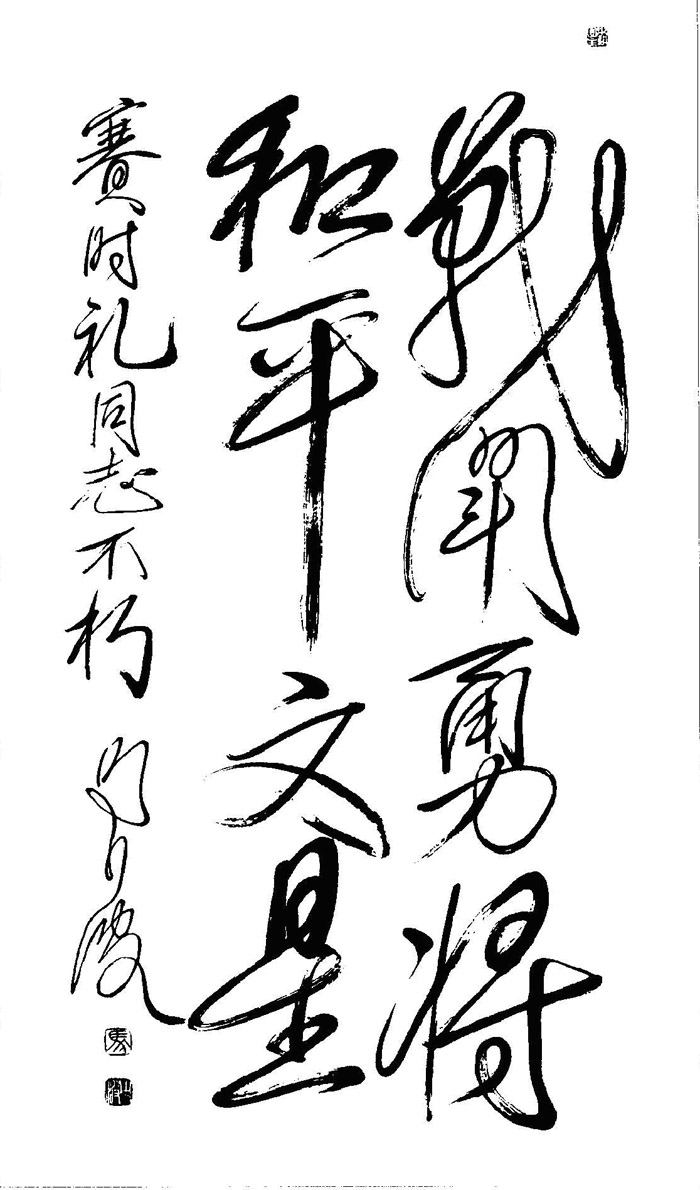 戰鬥勇将
和平文星
賽时礼同志不朽